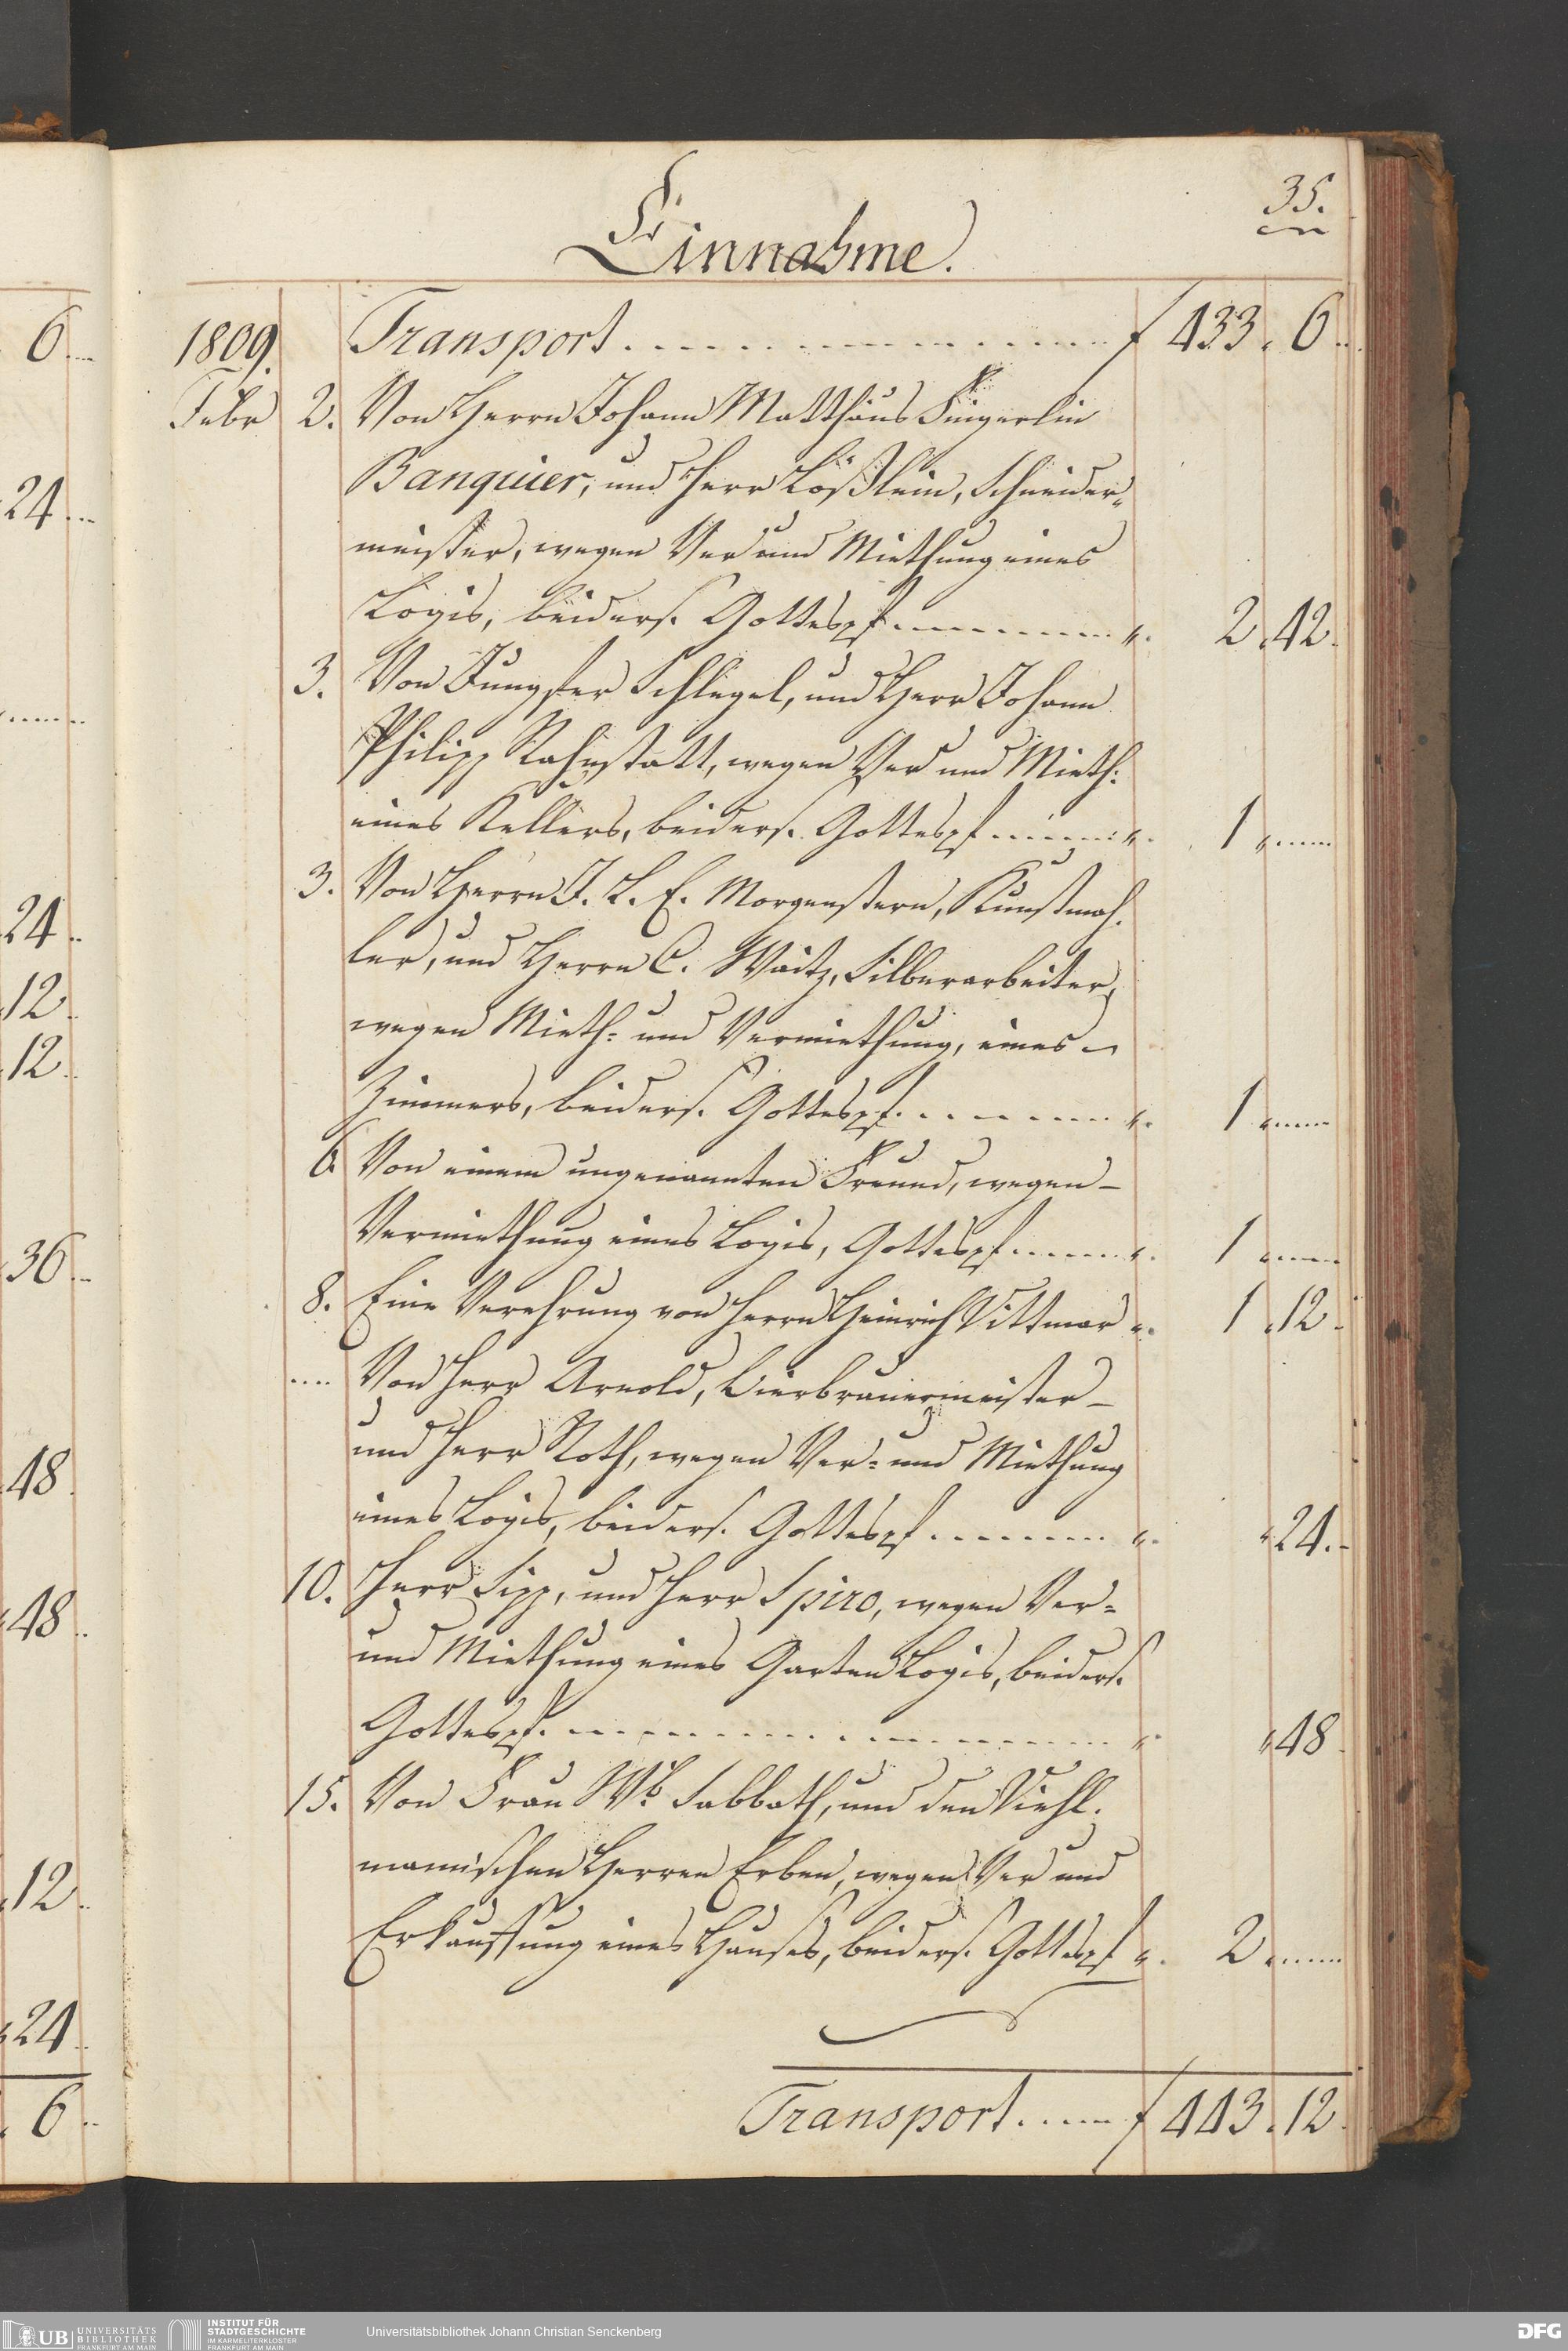 35.
Einnahme.
1809. Transport . . . . . . f 433. 6.
Febr 2. Von Herrn Johann Matthäus Fingerlin
Banquier, und Herr Lößlein, Schneider-
meister, wegen Ver und Miethung eines
Logis, beiders. Gottespf . . . . . . ". 2. 42.
3. Von Jungfer Schlegel, und Herr Johann
Philipp Rahnstatt, wegen Ver und Mieth:
eines Kellers, beiders. Gottespf . . . . . ". 1 " . . .
3. Von Herrn J. L. E. Morgenstern, Kunstmah-
ler, und Herrn C. Waitz, Silberarbeiter,
wegen Mieth- und Vermiethung, eines
Zimmers, beiders. Gottespf. . . . . . ". 1 " . . .
6. Von einem ungenannten Freund, wegen
Vermiethung eines Logis, Gottespf . . . . ". 1 " . . .
8. Eine Verehrung von Herrn Heinrich Dittmar ". 1. 12.
. . . . Von Herr Arnold, Bierbrauermeister
und Herr Roth, wegen Ver- und Miethung
eines Logis, beiders. Gottespf . . . . . . ". " 24.
10. Herr Sipp, und Herr Spiro, wegen Ver-
und Miethung eines Garten Logis, beiders.
Gottespf. . . . . . . . . ". " 48.
15. Von Frau Wb Sabbath, und den Diehl-
mannischen Herren Erben, wegen Ver und
Erkauffung eines Hauses, beiders. Gottespf ". 2 " . . .
Transport . . . . . f 443. 12.
6
24
24
12
12
36
48
48
12
24
6
UB UNIVERSITÄTS
BIBLIOTHEK
FRANKFURT AM MAIN
INSTITUT FÜR
STADTGESCHICHTE
IM KARMELITERKLOSTER
FRANKFURT AM MAIN
Universitätsbibliothek Johann Christian Senckenberg
DFG